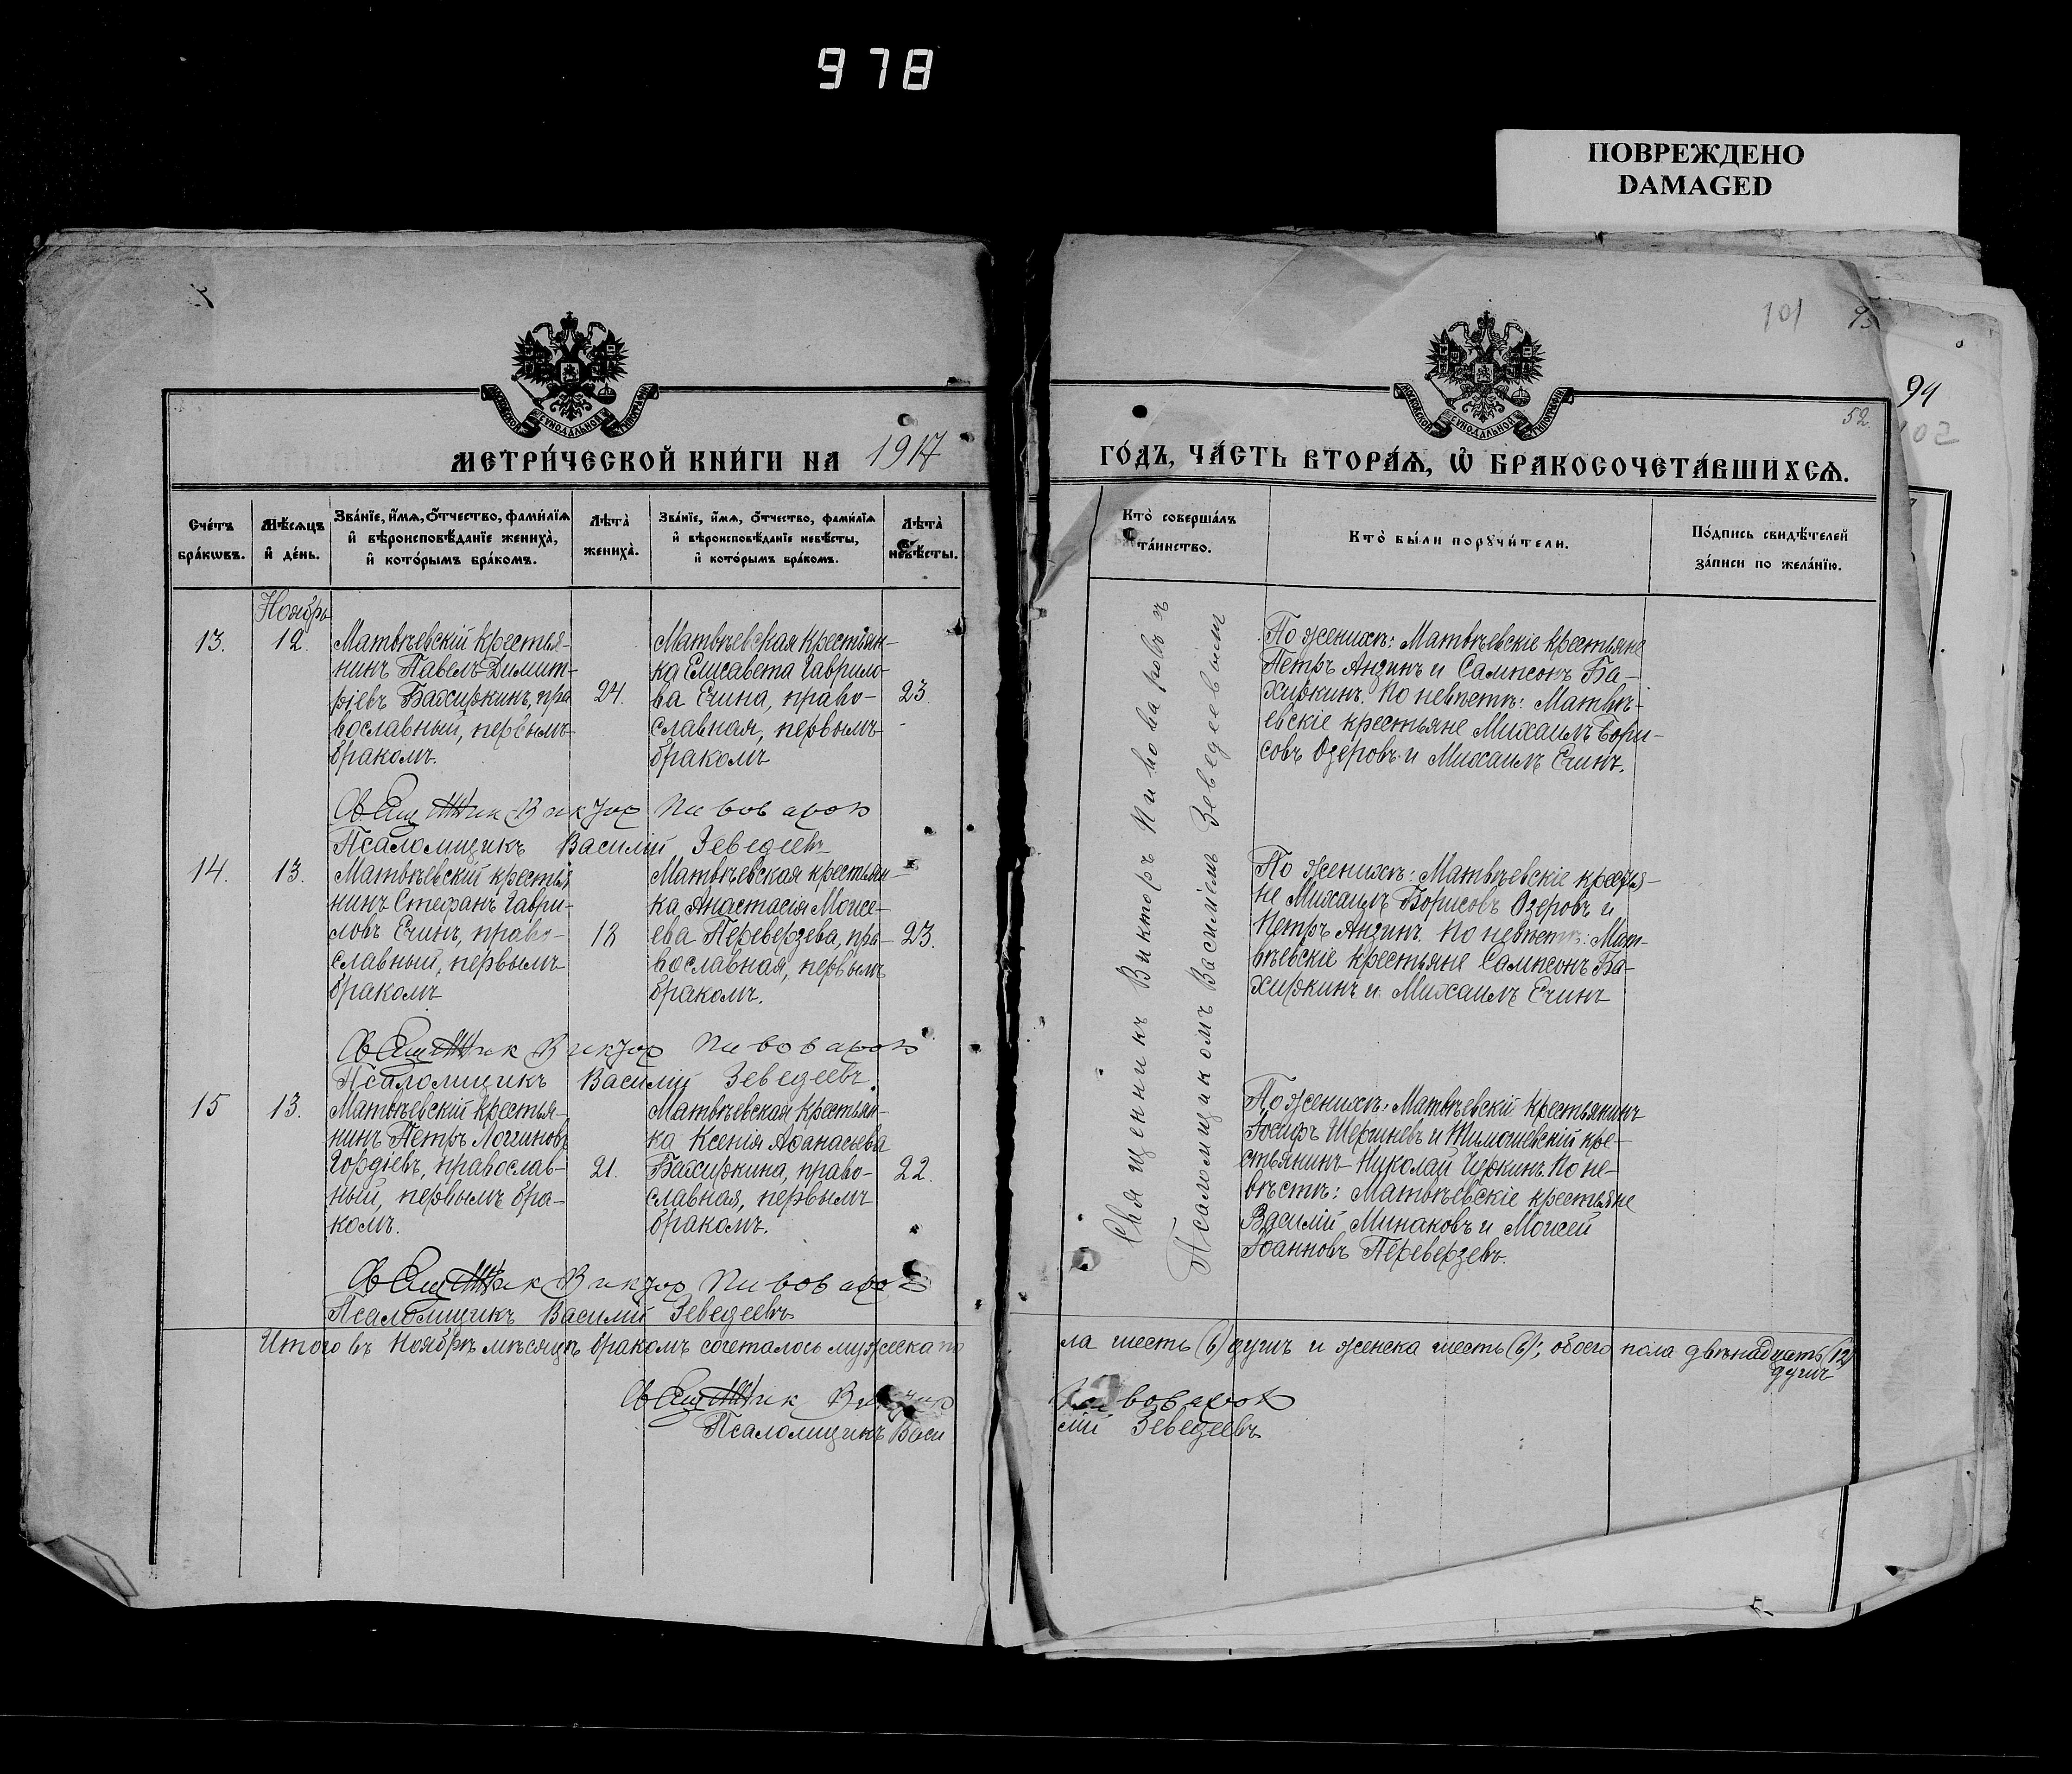 978
ПОВРЕЖДЕНО
DAMAGED
101
94
102
52.
МЕТРИ́ЧЕСКОЙ КНИ́ГИ НА 1917
ГО́ДЪ, ЧА́СТЬ ВТОРА́Ѧ, Ѡ҆ БРАКОСОЧЕТА́ВШИХСѦ.
Сче́тъ бра́кѡвъ.
Мѣ́сѧцъ и҆ де́нь.
Зва́нїе, и҆́мѧ, ѻ҆́тчество, фами́лїѧ
и҆ вѣроисповѣ́данїе жениха̀,
и҆ кото́рымъ бра́комъ.
Лѣ́та̀ жениха̀.
Зва́нїе, и҆́мѧ, ѻ҆́тчество, фами́лїѧ
и҆ вѣроисповѣ́данїе невѣ́сты,
и҆ кото́рымъ бра́комъ.
Лѣ́та̀ невѣ́сты.
Кто̀ соверша́лъ
та́инство.
Кто̀ бы́ли порꙋчи́тели.
По́дпись свидѣ́телей
за́писи по жела́нїю.
Ноябрь
13.
12.
Матвѣевскій крестья-
нинъ Павелъ Димит-
ріевъ Бахиркинъ, пра
вославный, первымъ
бракомъ.
24.
Матвѣевская крестьян-
ка Елисавета Гаврило-
ва Ечина, право-
славная, первымъ
бракомъ
23
По женихѣ: Матвѣевскіе крестьяне
Петръ Анзинъ и Сампсонъ Ба-
хиркинъ. По невѣстѣ: Матвѣ-
евскіе крестьяне Михаилъ Бори-
совъ Озеровъ и Михаилъ Ечинъ.
Свящ Виктор Пивоваров
Псаломщикъ Василій Зеведеевъ
14.
13.
Матвѣевскій крестья
нинъ Стефанъ Гаври-
ловъ Ечинъ, право-
славный, первымъ
бракомъ
18
Матвѣевская крестьян-
ка Анастасія Моисе-
ева Переверзева, пра-
вославная, первымъ
бракомъ.
23.
По женихѣ: Матвѣевскіе крестья-
не Михаилъ Борисовъ Озеровъ и
Петръ Анзинъ. По невѣстѣ: Мат-
вѣевскіе крестьяне Сампсонъ Ба-
хиркинъ и Михаилъ Ечинъ
Виктор Пивоваров
Псаломщикъ Василій Зеведеевъ.
15
13.
Матвѣевскій крестья-
нинъ Петръ Логгиновъ
Гордіевъ, православ-
ный, первымъ бра-
комъ.
21.
Матвѣевская крестьян-
ка Ксенія Аѳанасьева
Бахиркина, право-
славная, первымъ
бракомъ.
22.
По женихѣ: Матвѣевскій крестьянинъ
Іосифъ Шершневъ и Тимошевскій кре-
стьянинъ Николай Чуркинъ. По не-
вѣстѣ: Матвѣевскіе крестьяне
Василій Минаковъ и Моисей
Іоанновъ Переверзевъ.
Виктор Пивоваров
Псаломщикъ Василій Зеведеевъ
Священникъ Викторъ Пивоваровъ съ
Псаломщикомъ Василіемъ Зеведеевымъ
Итого въ Ноябрѣ мѣсяцѣ бракомъ сочеталось мужеска по
ла шесть (6) душъ и женска шесть (6); обоего пола двѣнадцать (12)
душъ
Псаломщикъ Васи
лій Зеведеевъ